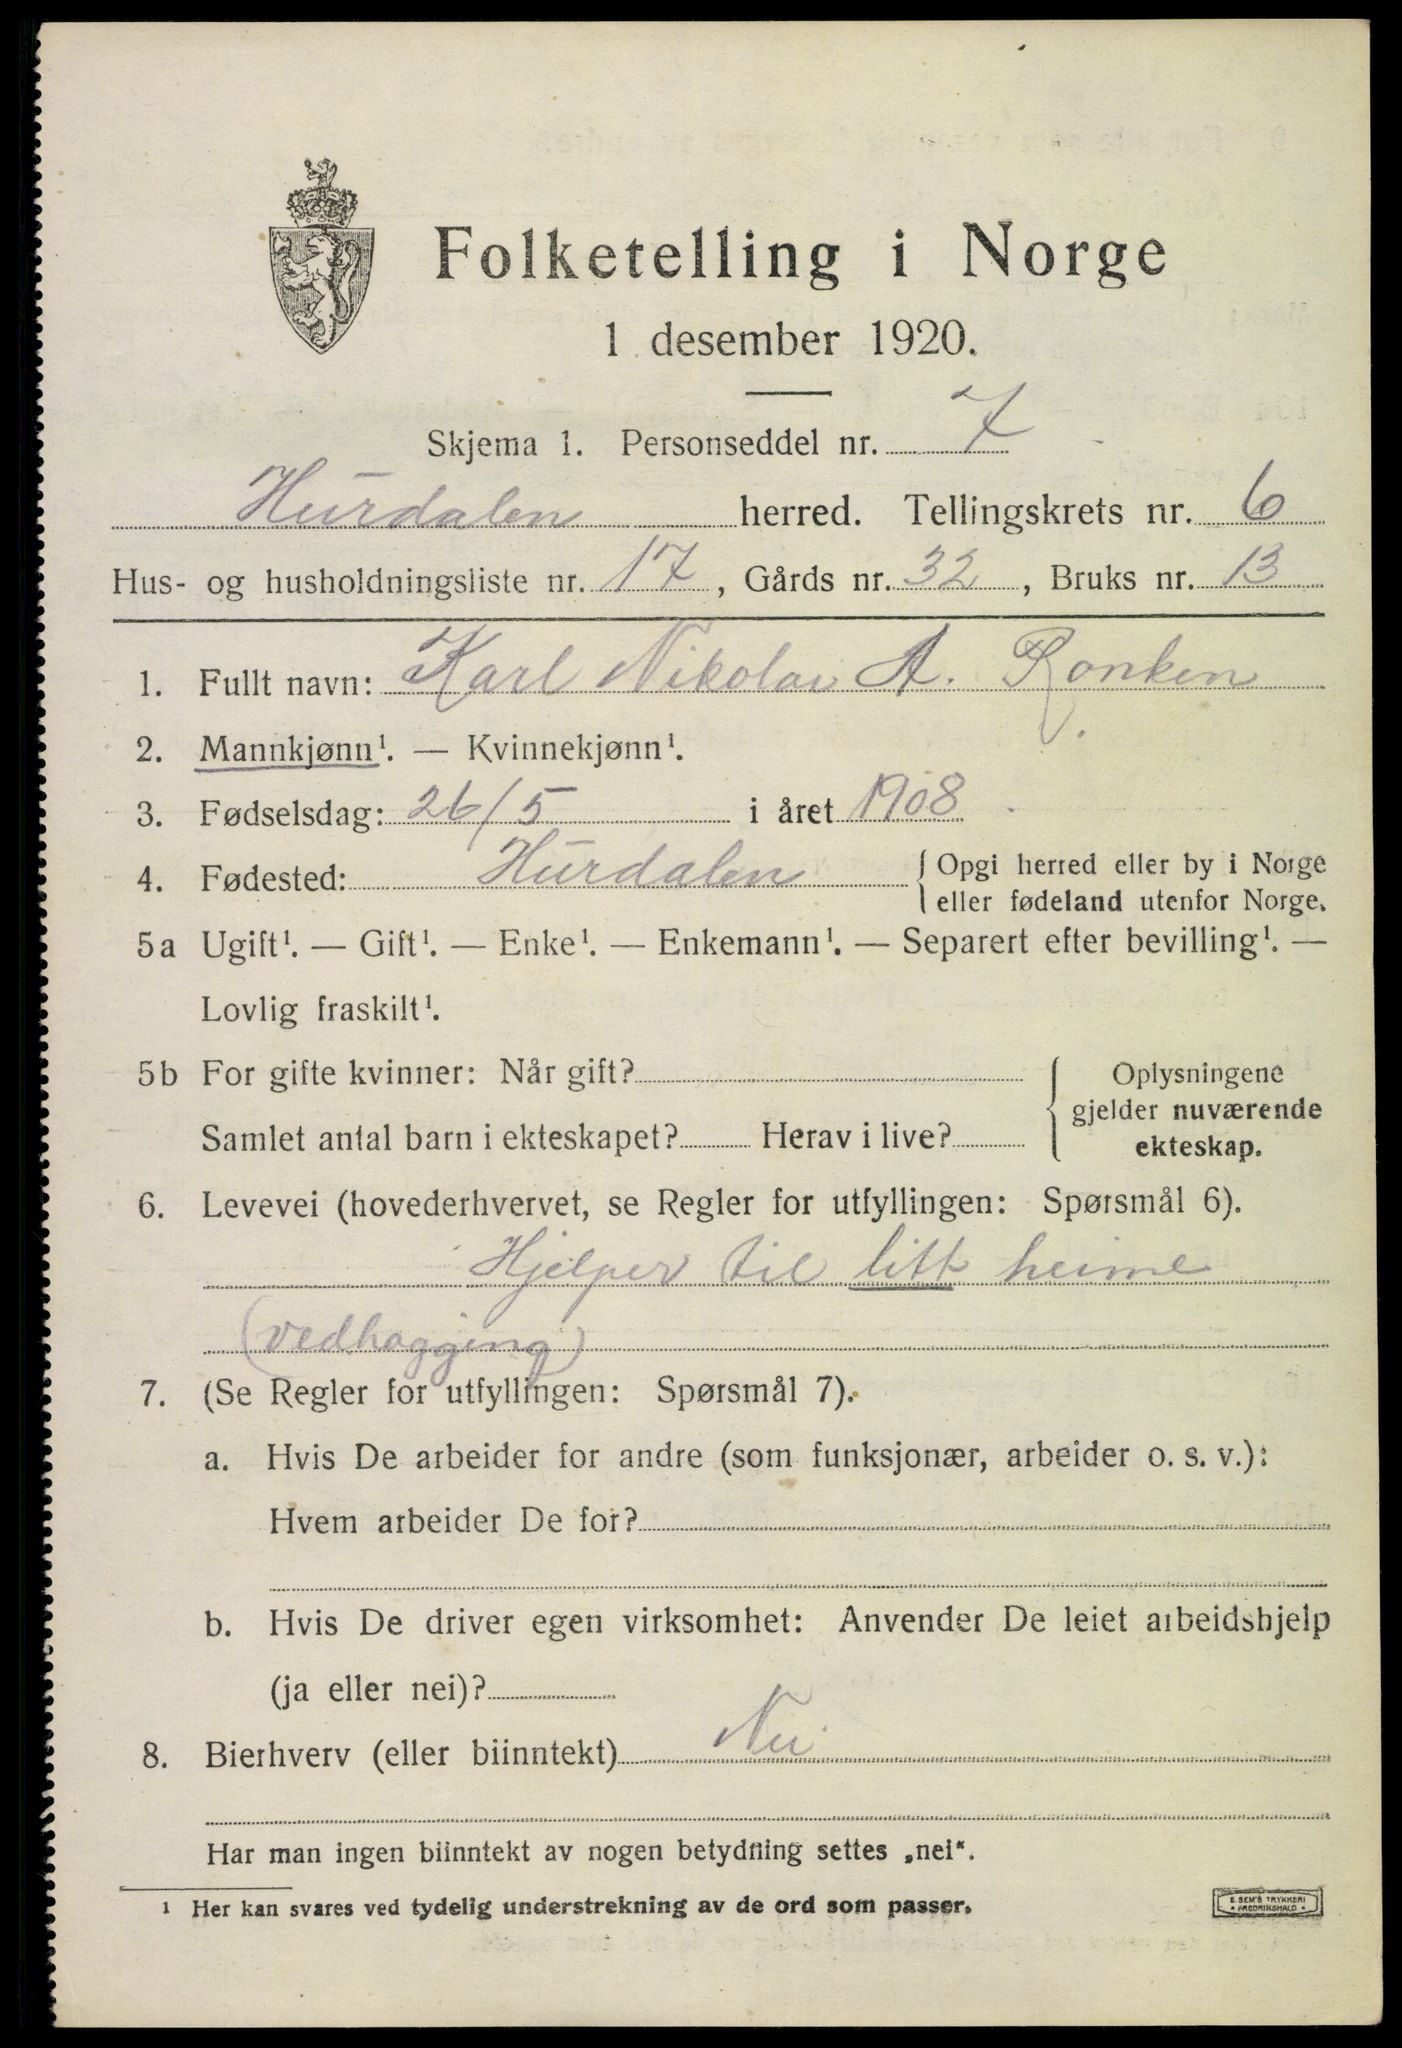 Folketelling i Norge
1 desember 1920.
Skjema 1. Personseddel nr. 7
Hurdalen herred. Tellingskrets nr. 6
Hus- og husholdningsliste nr. 17, Gårds nr. 32, Bruks nr. 13
1. Fullt navn: Karl Nikolai A. Ronken
2. Mannkjønn¹. — Kvinnekjønn¹.
3. Fødselsdag: 26/5 i året 1908
4. Fødested: Hurdalen { Opgi herred eller by i Norge
eller fødeland utenfor Norge.
5a Ugift¹. — Gift¹. — Enke¹. — Enkemann¹. — Separert efter bevilling¹. —
Lovlig fraskilt¹.
5b For gifte kvinner: Når gift? { Oplysningene
gjelder nuværende
Samlet antal barn i ekteskapet? Herav i live? ekteskap.
6. Levevei (hovederhvervet, se Regler for utfyllingen: Spørsmål 6).
Hjelper til litt heime
(vedhogging)
7. (Se Regler for utfyllingen: Spørsmål 7).
a. Hvis De arbeider for andre (som funksjonær, arbeider o. s. v.):
Hvem arbeider De for?
b. Hvis De driver egen virksomhet: Anvender De leiet arbeidshjelp
(ja eller nei)?
8. Bierhverv (eller biinntekt) Nei
Har man ingen biinntekt av nogen betydning settes „nei“.
¹ Her kan svares ved tydelig understrekning av de ord som passer.
E. SEM'S TRYKKERI
• FREDRIKSHALD •